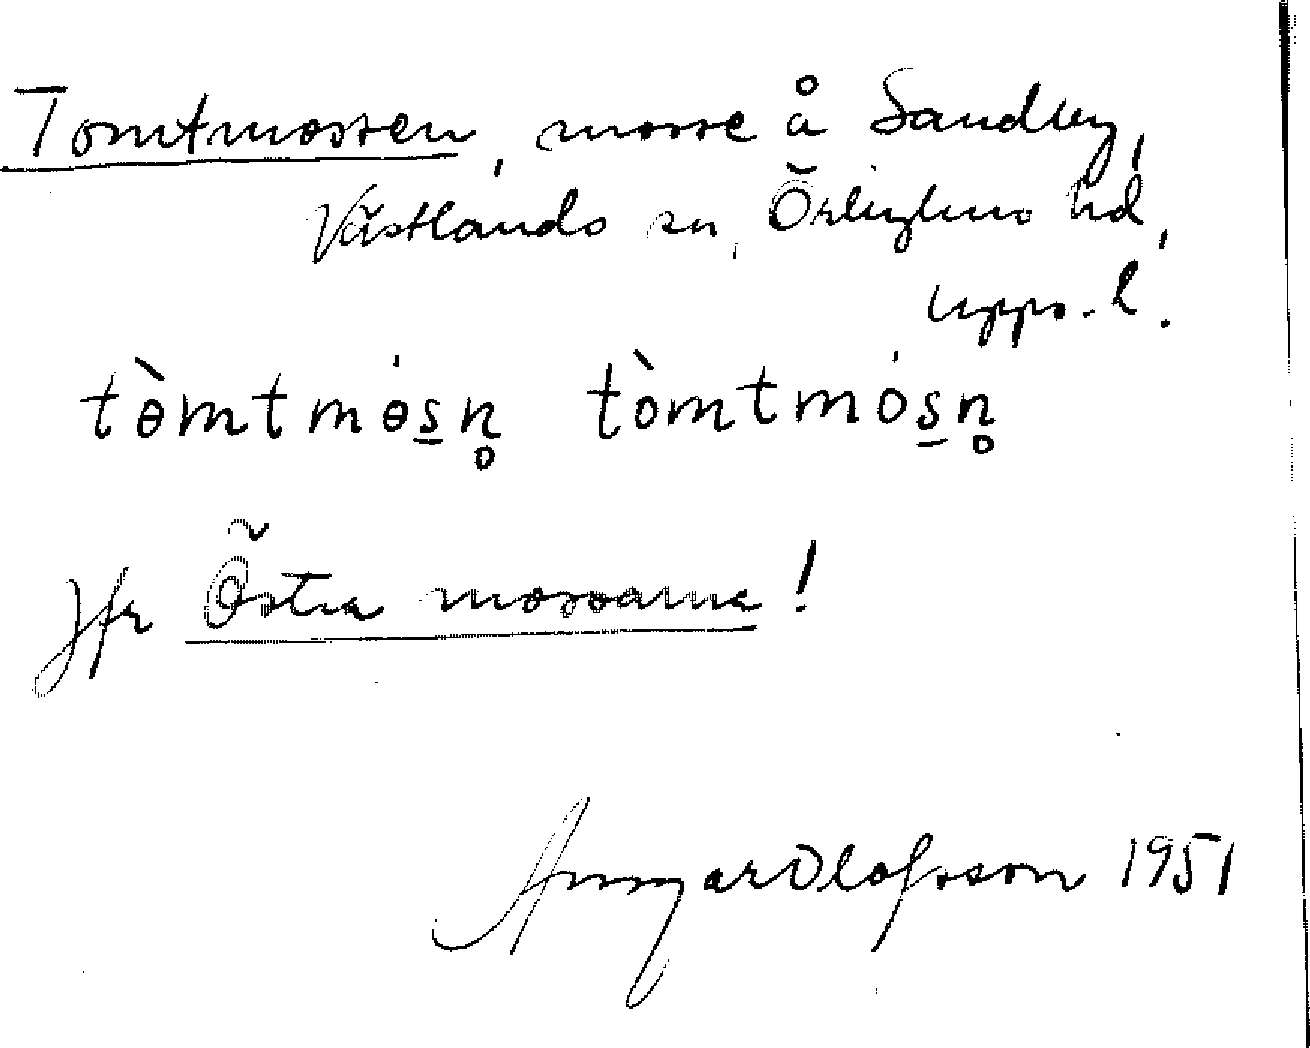 Tomtmossen, mosse å Sandby,
Västlands sn, Örbyhus hd,
Upps. l.
tɵ̀mtmɵ́s̲n̥ tòmtmós̲n̥
Jfr Östra mossarna!
Ansgar Olofsson 1951